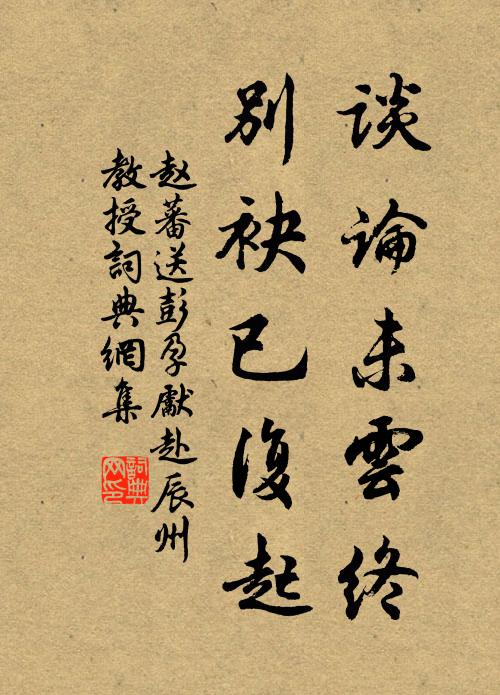 谈論未雲终
别袂已復起
赵蕃送彭孕獻赴辰州
教授詞典網集
詞典网印